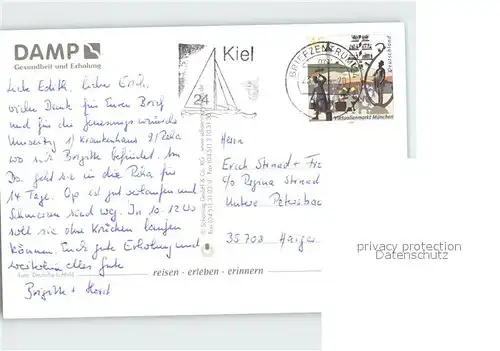 DAMP
Gesundheit und Erholung
Kiel
24
BRIEFZENTRUM
Deutschland
Viktualienmarkt München
Liebe Edith, lieber Erich,
vielen Dank für Euren Brief
und für die Genesungswünsche
Umseitig 1) Krankenhaus 2) Reha
wo sich Brigitte befindet. Am
Do. geht sie in die Reha für
14 Tage. Op ist gut verlaufen und
Schmerzen sind weg. In 10-12 Wo
soll sie ohne Krücken laufen
können. Euch gute Erholung und
weiterhin alles Gute
Brigitte + Horst
Herrn
Erich
c/o Regina
Untere
35708
reisen - erleben - erinnern
privacy protection
Datenschutz